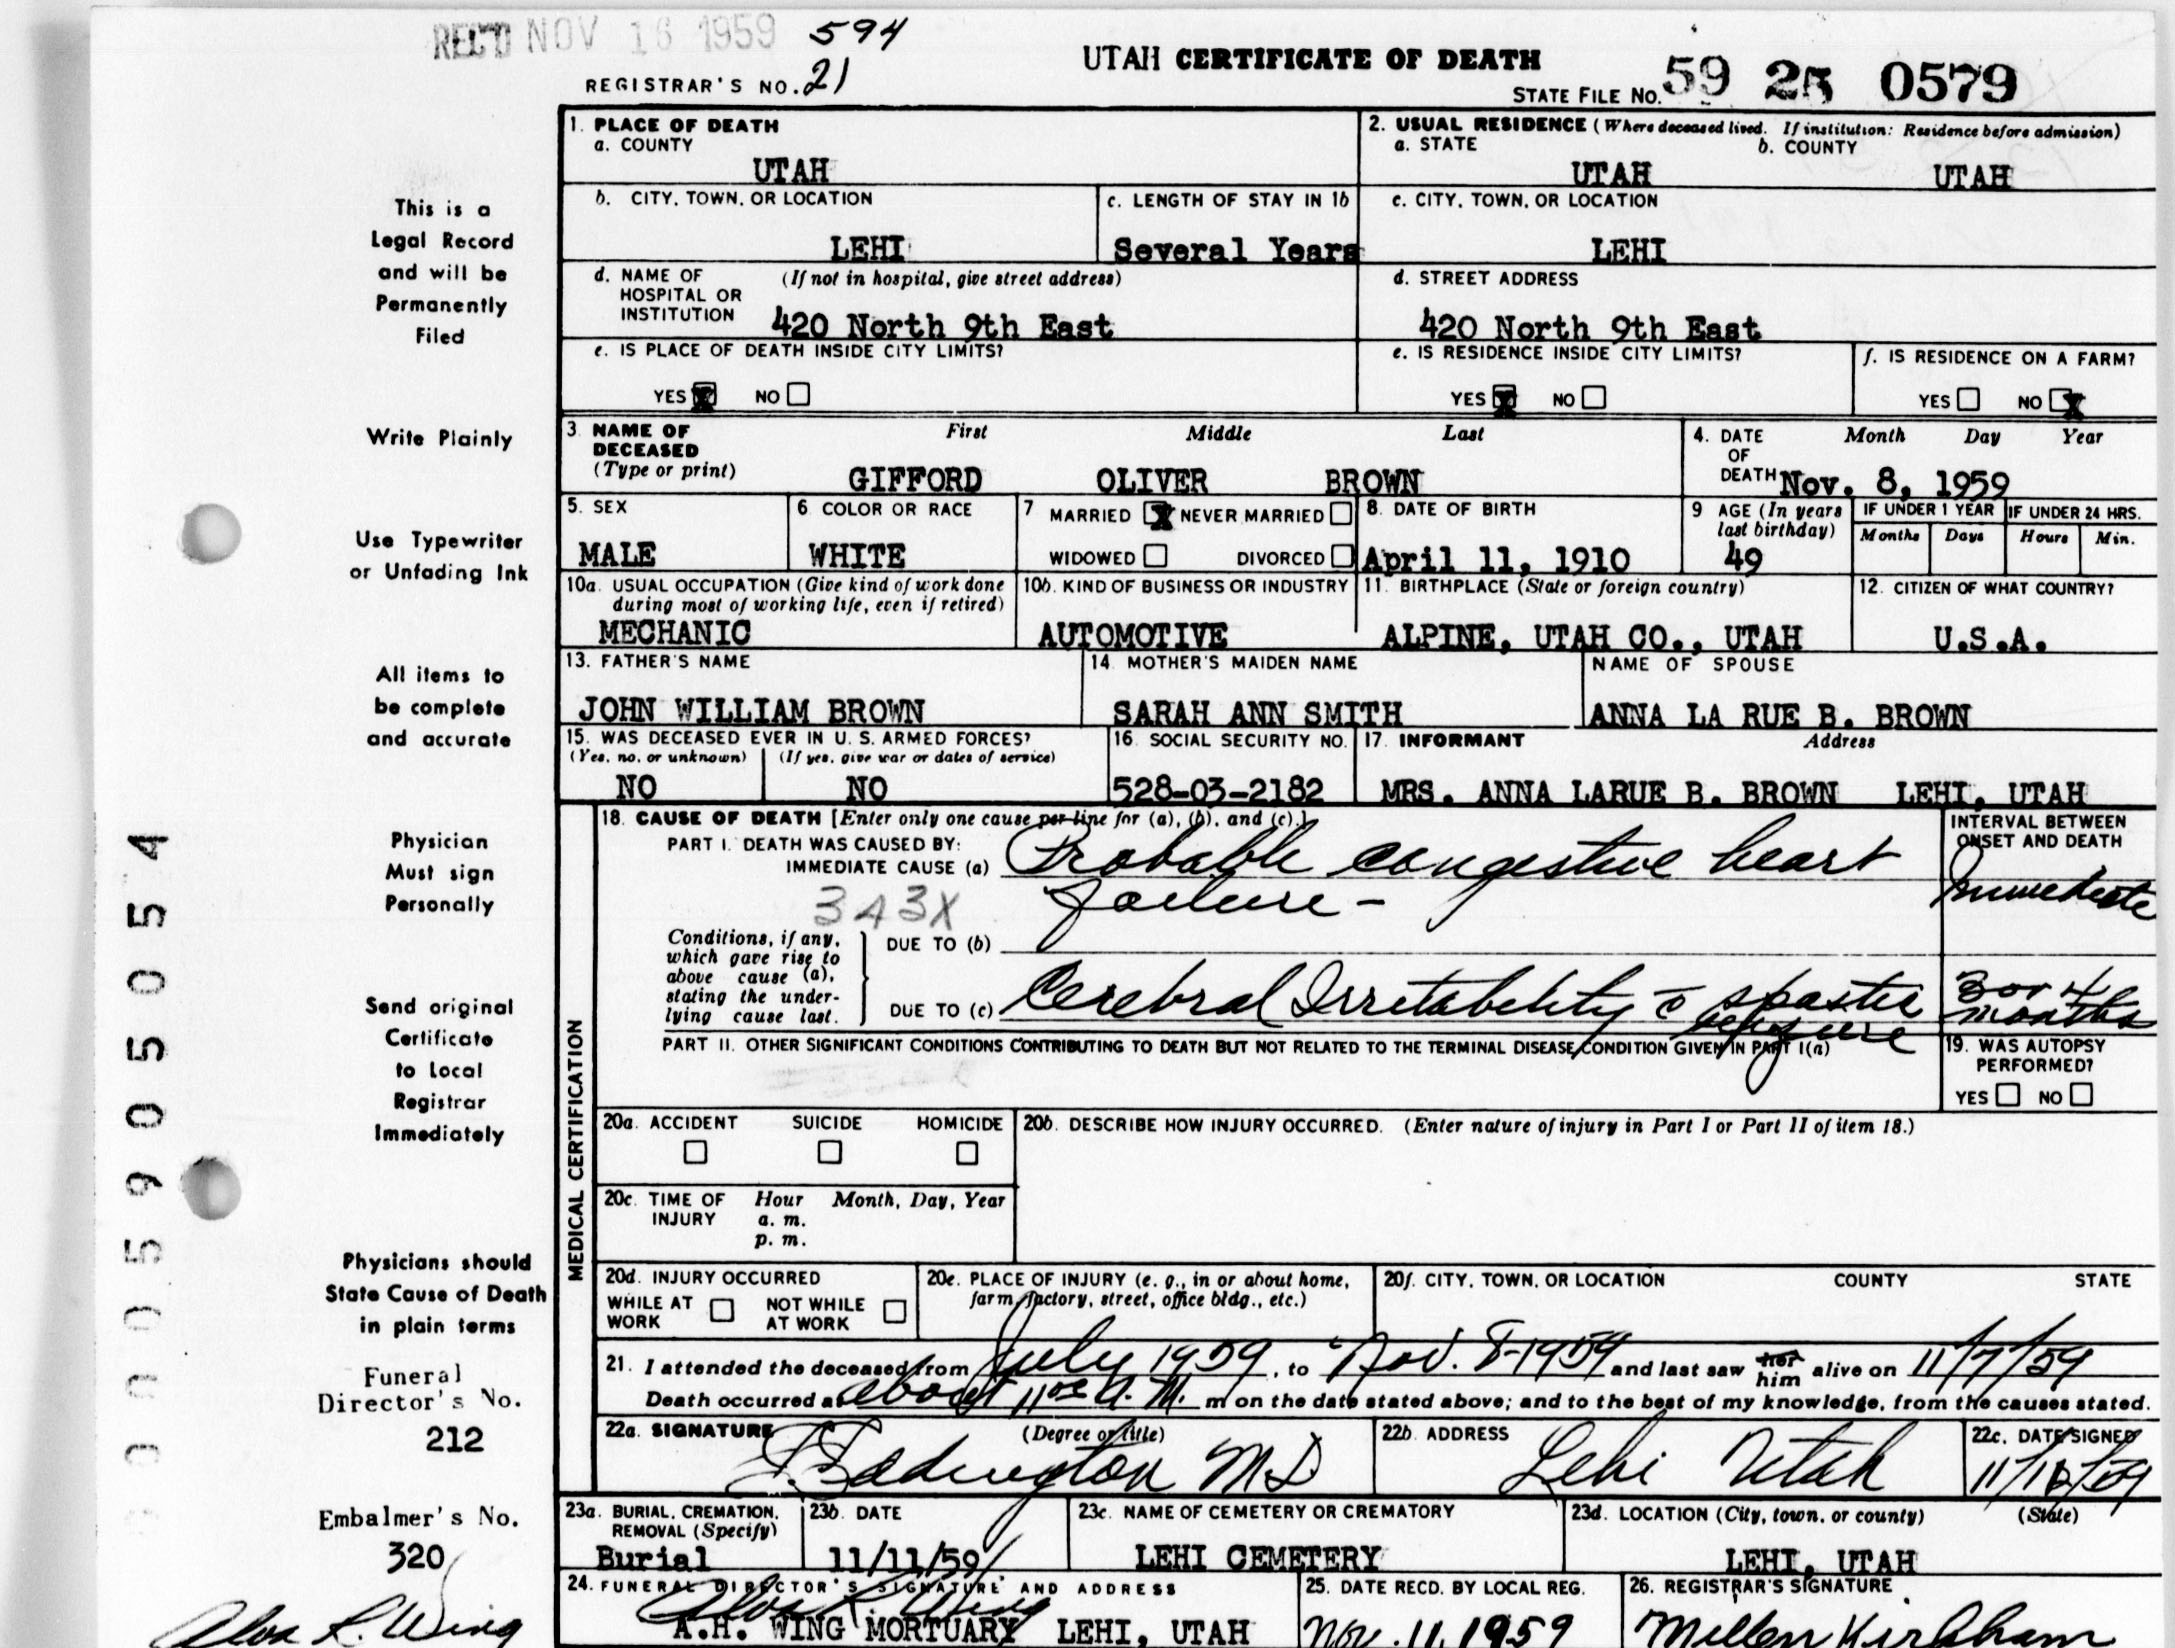 REC'D NOV 16 1959 594
REGISTRAR'S NO. 21
UTAH CERTIFICATE OF DEATH
STATE FILE NO. 59 25 0579
1. PLACE OF DEATH
a. COUNTY
UTAH
2. USUAL RESIDENCE (Where deceased lived. If institution: Residence before admission)
a. STATE b. COUNTY
UTAH UTAH
b. CITY, TOWN, OR LOCATION
LEHI
c. LENGTH OF STAY IN 1b
Several Years
c. CITY, TOWN, OR LOCATION
LEHI
d. NAME OF (If not in hospital, give street address)
HOSPITAL OR
INSTITUTION
420 North 9th East
d. STREET ADDRESS
420 North 9th East
e. IS PLACE OF DEATH INSIDE CITY LIMITS?
YES X NO
e. IS RESIDENCE INSIDE CITY LIMITS?
YES X NO
f. IS RESIDENCE ON A FARM?
YES NO X
3. NAME OF DECEASED
(Type or print)
First Middle Last
GIFFORD OLIVER BROWN
4. DATE OF DEATH Month Day Year
Nov. 8, 1959
5. SEX
MALE
6. COLOR OR RACE
WHITE
7 MARRIED X NEVER MARRIED
WIDOWED DIVORCED
8. DATE OF BIRTH
April 11, 1910
9 AGE (In years last birthday)
49
IF UNDER 1 YEAR
Months Days
IF UNDER 24 HRS.
Hours Min.
10a. USUAL OCCUPATION (Give kind of work done
during most of working life, even if retired)
MECHANIC
10b. KIND OF BUSINESS OR INDUSTRY
AUTOMOTIVE
11. BIRTHPLACE (State or foreign country)
ALPINE, UTAH CO., UTAH
12. CITIZEN OF WHAT COUNTRY?
U.S.A.
13. FATHER'S NAME
JOHN WILLIAM BROWN
14. MOTHER'S MAIDEN NAME
SARAH ANN SMITH
NAME OF SPOUSE
ANNA LA RUE B. BROWN
15. WAS DECEASED EVER IN U. S. ARMED FORCES?
(Yes, no, or unknown) (If yes, give war or dates of service)
NO NO
16. SOCIAL SECURITY NO.
528-03-2182
17. INFORMANT Address
MRS. ANNA LARUE B. BROWN LEHI, UTAH
MEDICAL CERTIFICATION
18. CAUSE OF DEATH [Enter only one cause per line for (a), (b), and (c).]
PART I. DEATH WAS CAUSED BY:
IMMEDIATE CAUSE (a) Probable congestive heart
failure -
343X
INTERVAL BETWEEN
ONSET AND DEATH
Immediate
Conditions, if any,
which gave rise to
above cause (a),
stating the under-
lying cause last.
DUE TO (b)
DUE TO (c) Cerebral Irritability c spastic
seizure
3 or 4
months
PART II. OTHER SIGNIFICANT CONDITIONS CONTRIBUTING TO DEATH BUT NOT RELATED TO THE TERMINAL DISEASE CONDITION GIVEN IN PART I(a)
19. WAS AUTOPSY
PERFORMED?
YES NO
20a. ACCIDENT SUICIDE HOMICIDE
20b. DESCRIBE HOW INJURY OCCURRED. (Enter nature of injury in Part I or Part II of item 18.)
20c. TIME OF INJURY Hour Month, Day, Year
a. m.
p. m.
20d. INJURY OCCURRED
WHILE AT WORK NOT WHILE AT WORK
20e. PLACE OF INJURY (e. g., in or about home,
farm, factory, street, office bldg., etc.)
20f. CITY, TOWN, OR LOCATION COUNTY STATE
21. I attended the deceased from July 1959, to Nov. 8-1959 and last saw her him alive on 11/7/59
Death occurred at about 11:00 A.M. m on the date stated above; and to the best of my knowledge, from the causes stated.
22a. SIGNATURE (Degree or title)
Eddington MD
22b. ADDRESS
Lehi Utah
22c. DATE SIGNED
23a. BURIAL, CREMATION,
REMOVAL (Specify)
Burial
23b. DATE
11/11/59
23c. NAME OF CEMETERY OR CREMATORY
LEHI CEMETERY
23d. LOCATION (City, town, or county) (State)
LEHI, UTAH
24. FUNERAL DIRECTOR'S SIGNATURE AND ADDRESS
Alva R. Wing
A.H. WING MORTUARY LEHI, UTAH
25. DATE RECD. BY LOCAL REG.
Nov. 11, 1959
26. REGISTRAR'S SIGNATURE
Millen Kirkham
This is a
Legal Record
and will be
Permanently
Filed
Write Plainly
Use Typewriter
or Unfading Ink
All items to
be complete
and accurate
Physician
Must sign
Personally
Send original
Certificate
to Local
Registrar
Immediately
Physicians should
State Cause of Death
in plain terms
Funeral
Director's No.
212
Embalmer's No.
320
Alva R. Wing
0005905054